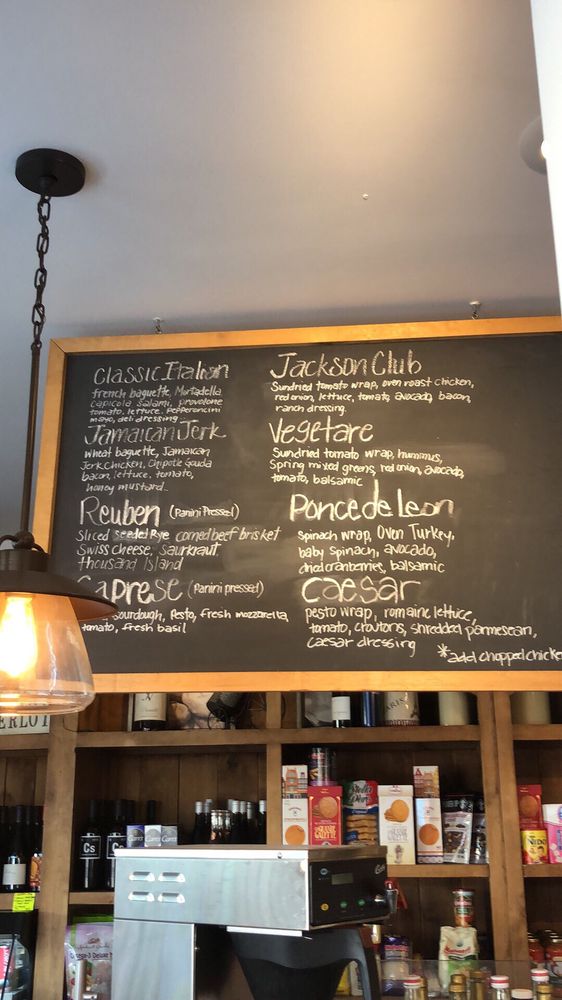 Classic Italian
french baguette, Mortadella
capicola salami, provolone
tomato, lettuce, pepperoncini
mayo, deli dressing
Jamaican Jerk
wheat baguette, Jamaican
Jerk chicken, Chipotle Gouda
bacon, lettuce, tomato,
honey mustard..
Reuben (Panini Pressed)
Sliced seeded Rye corned beef brisket
Swiss cheese, Saurkraut
thousand Island
Caprese (Panini pressed)
sourdough, Pesto, fresh mozzarella,
tomato, fresh basil
Jackson Club
Sundried tomato wrap, oven roast chicken,
red onion, lettuce, tomato, avocado, bacon,
ranch dressing.
Vegetare
Sundried tomato wrap, hummus,
Spring mixed greens, red onion, avocado,
tomato, balsamic
Ponce de Leon
Spinach wrap, Oven Turkey,
baby spinach, avocado,
dried cranberries, balsamic
Caesar
pesto wrap, romaine lettuce,
tomato, croutons, shredded parmesean,
Caesar dressing
*add chopped chicken
ERLOT
Cs
Cs